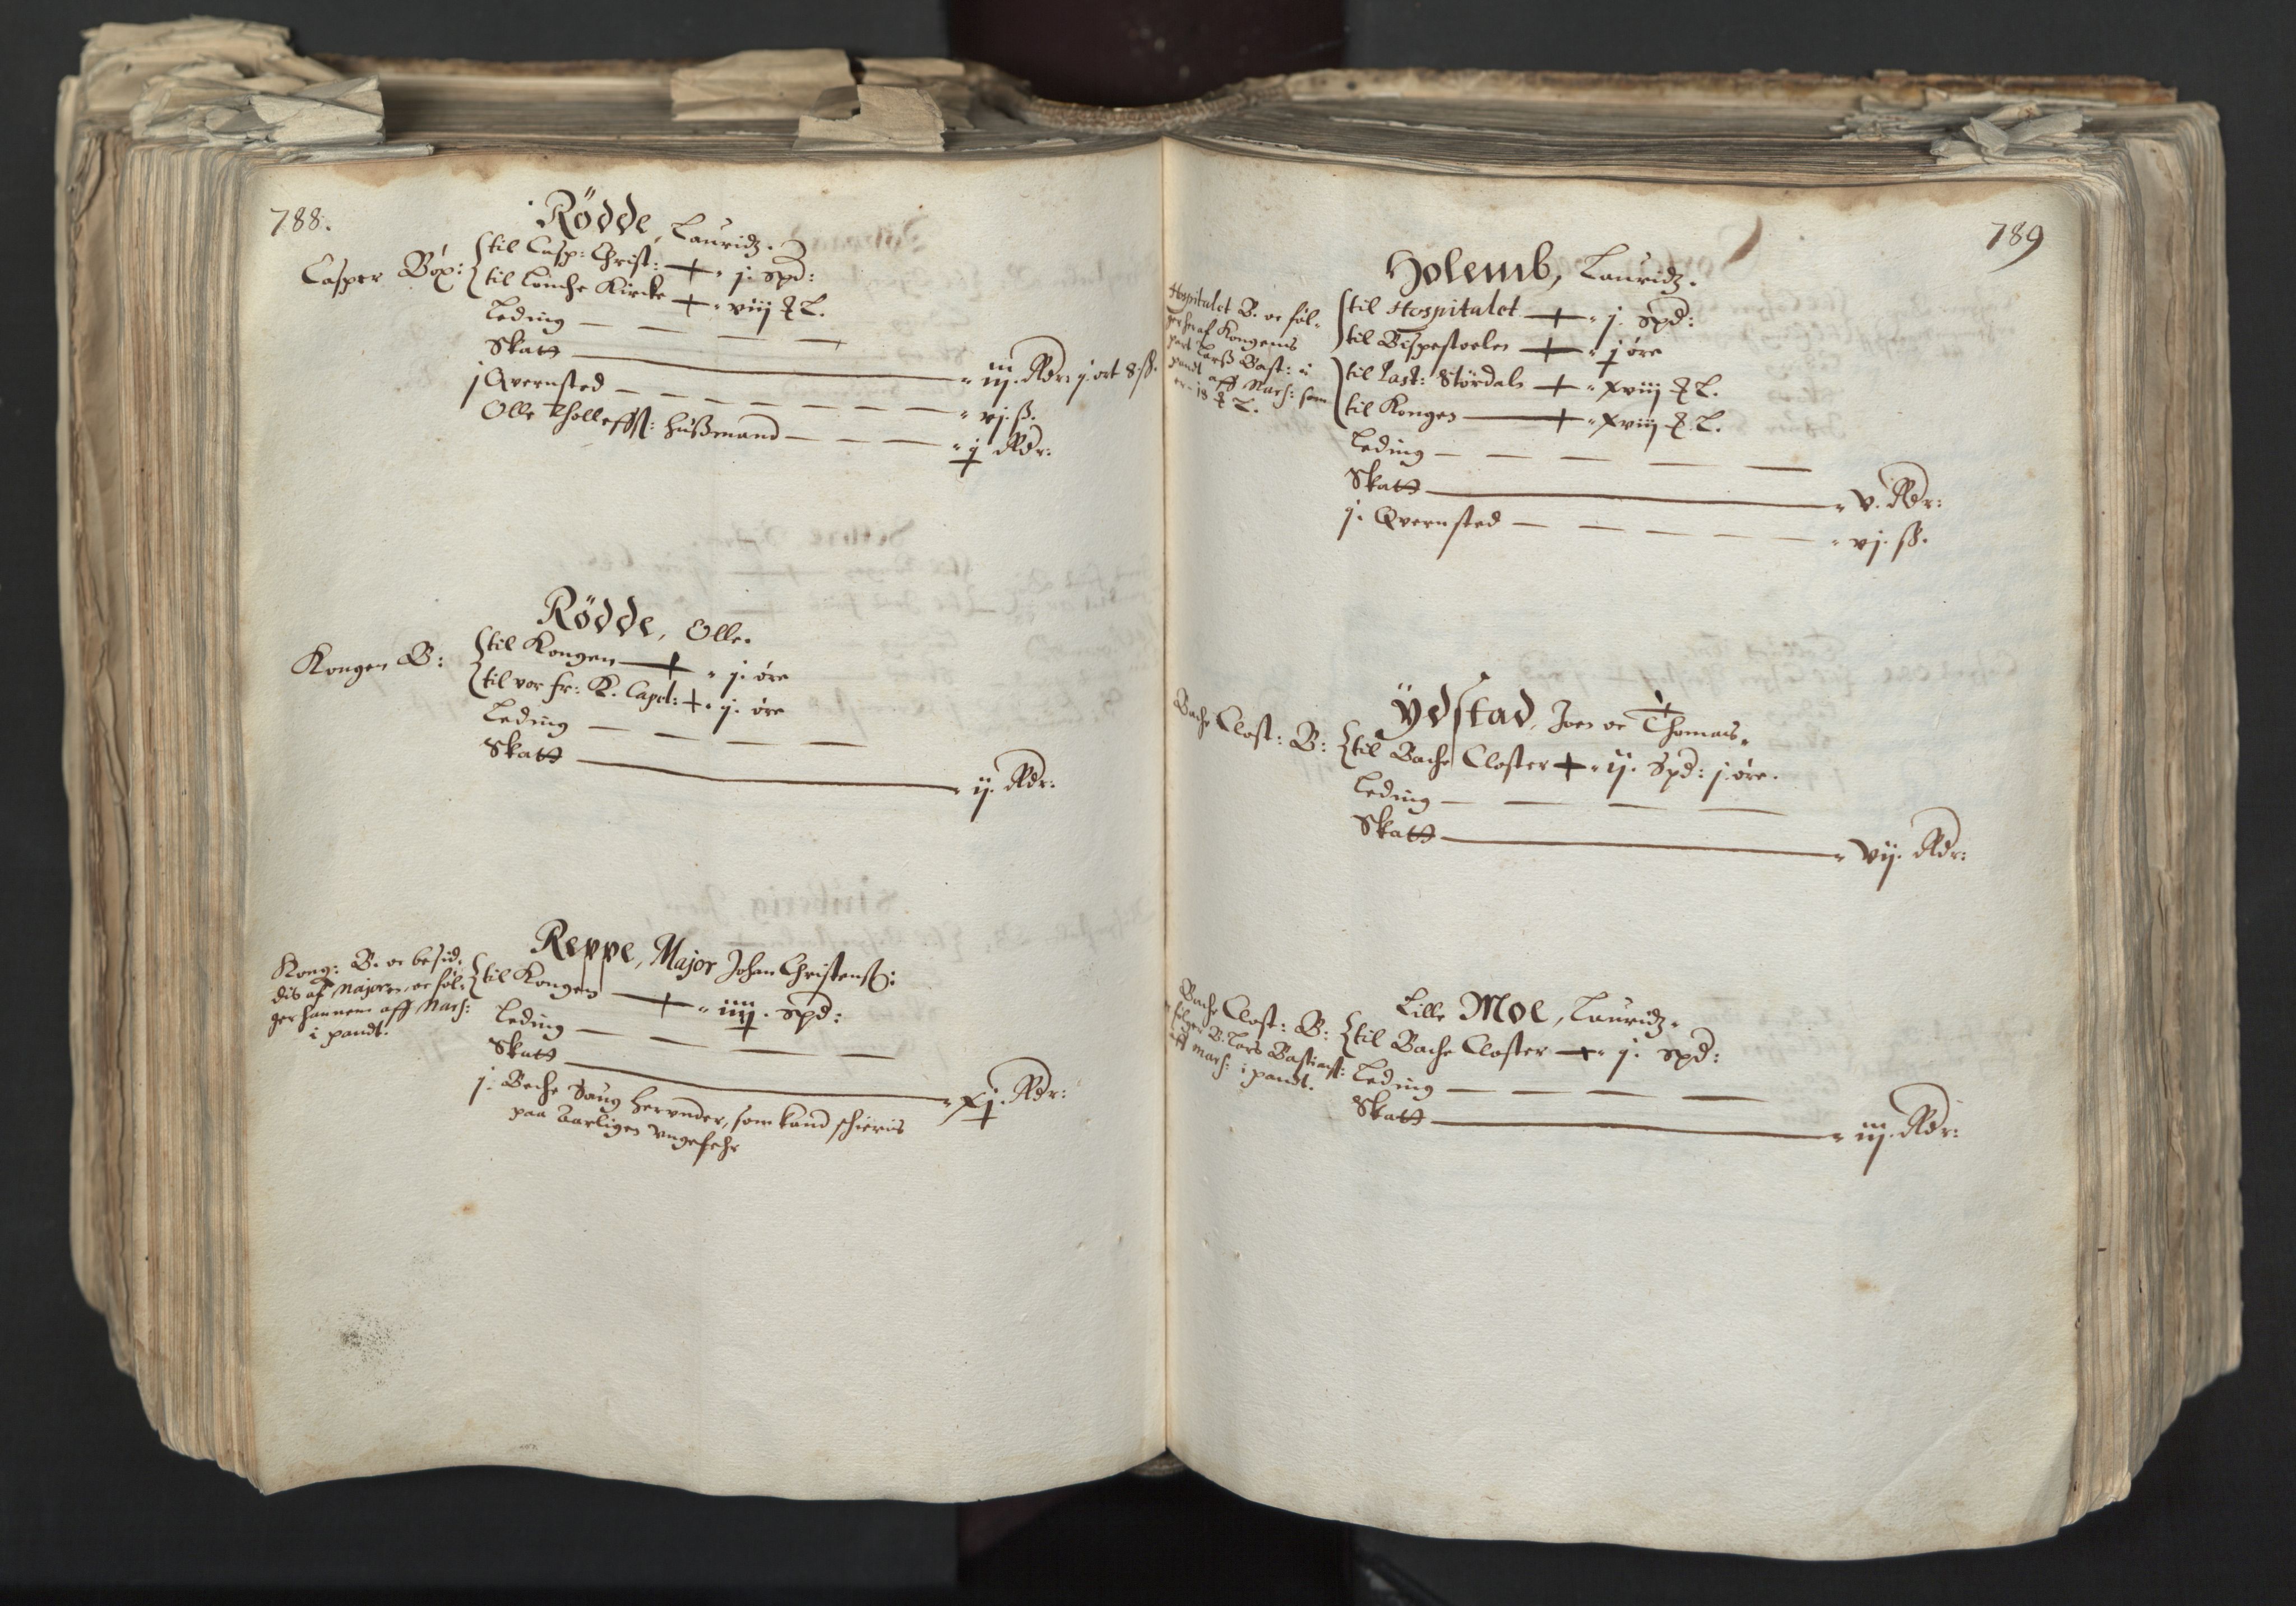 788.
Rödde, Lauridz.
Casper Böx: til Casp: Christ: + " j. Spd:
til Lönche Kircke + " viij ℔ L.
Leding — — — —
Skatt — " iij. Rdr: j. ort 8 ß.
j Qvernsted — — — " vj. ß.
Olle Tholleffß: Hußmand — — — " j Rdr:
Rödde, Olle.
Kongen B: til Kongen + " j. öre
til vor fr: K. Capel: + " j. öre
Leding — — — —
Skatt — " ij. Rdr:
Reppe, Major Johan Christenß:
Kong: B. oc besid-
dis af Majoren, oc föl-
ger hannem aff Mats:
i pandt.
til Kongen + " iiij. Spd:
Leding — — — —
Skatt — " xj. Rdr:
j. Beche Saug herunder, som kand schieris
paa Aarligen ungefehr
789
Holemb, Lauridz.
Hospitalet B. oc föl-
ger heraf Kongens
part Larß Bast: i
pandt aff Mats: som
er - 18 ℔ L.
til Hospitalet + " j. Spd:
til Bispestoelen + " j öre
til Past: Stördals + " xviij ℔ L.
til Kongen + " xviij ℔ L.
Leding — — — —
Skatt — " v. Rdr:
j. Qvernsted — — — " vj. ß.
Ÿdstad, Joen oc Thomas.
Bache Clost: B: til Bache Closter + " ij. Spd: j. öre.
Leding — — — —
Skatt — " vij. Rdr:
Lille Moe, Lauridz.
Bache Clost: B:
fölger B. Lars Bastianß:
aff Mats: i pandt.
til Bache Closter + " j. Spd:
Leding — — — —
Skatt — " iij. Rdr: